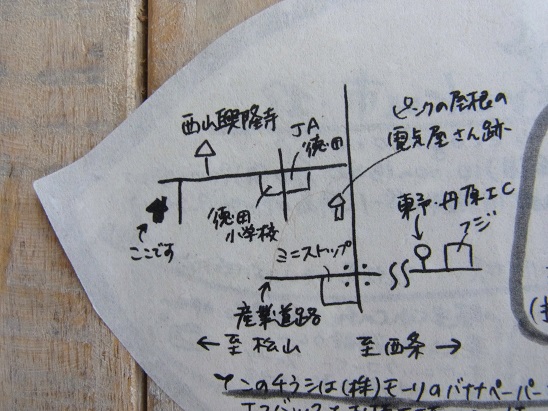 西山興隆寺
JA
徳田
ピンクの屋根の
電気屋さん跡
徳田
小学校
東予・丹原IC
フジ
ここです
ミニストップ
産業道路
← 至松山
至西条 →
このチラシは(株)モーリのバナナペーパー